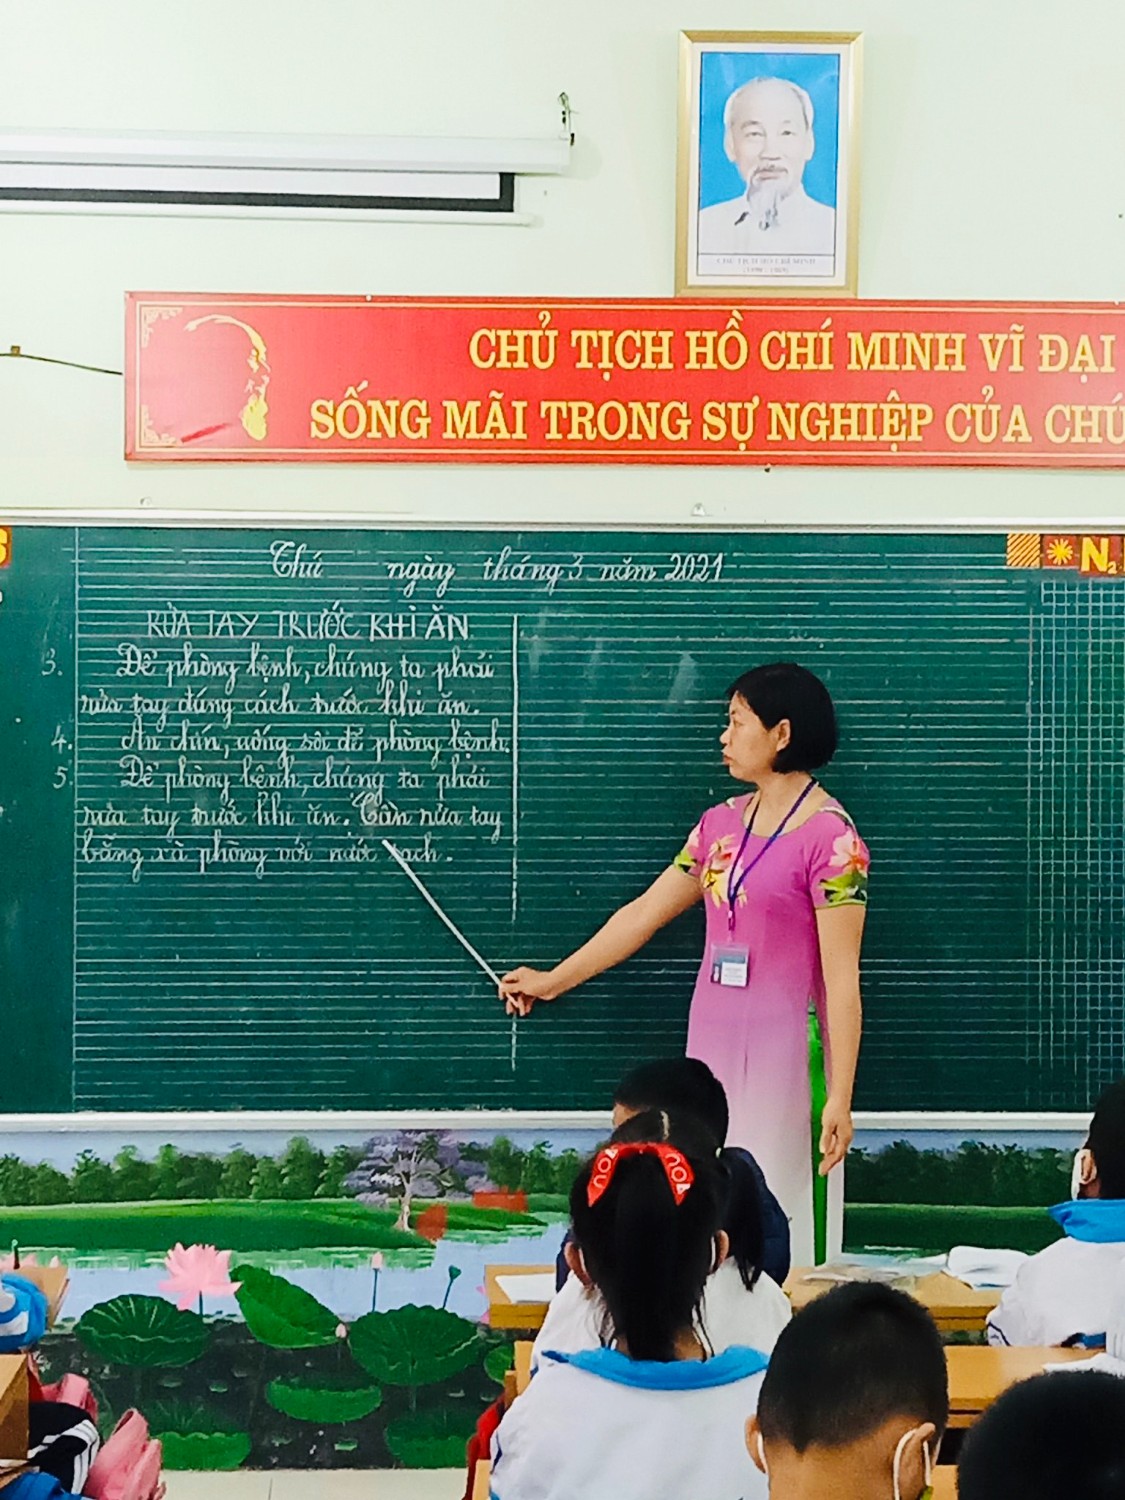 CHỦ TỊCH HỒ CHÍ MINH
CHỦ TỊCH HỒ CHÍ MINH VĨ ĐẠI
SỐNG MÃI TRONG SỰ NGHIỆP CỦA CHÚ
N2
Thứ ngày tháng 3 năm 2021
RỬA TAY TRƯỚC KHI ĂN
3. Để phòng bệnh, chúng ta phải
rửa tay đúng cách trước khi ăn.
4. Ăn chín, uống sôi để phòng bệnh.
5. Để phòng bệnh, chúng ta phải
rửa tay trước khi ăn. Cần rửa tay
bằng xà phòng với nước sạch.